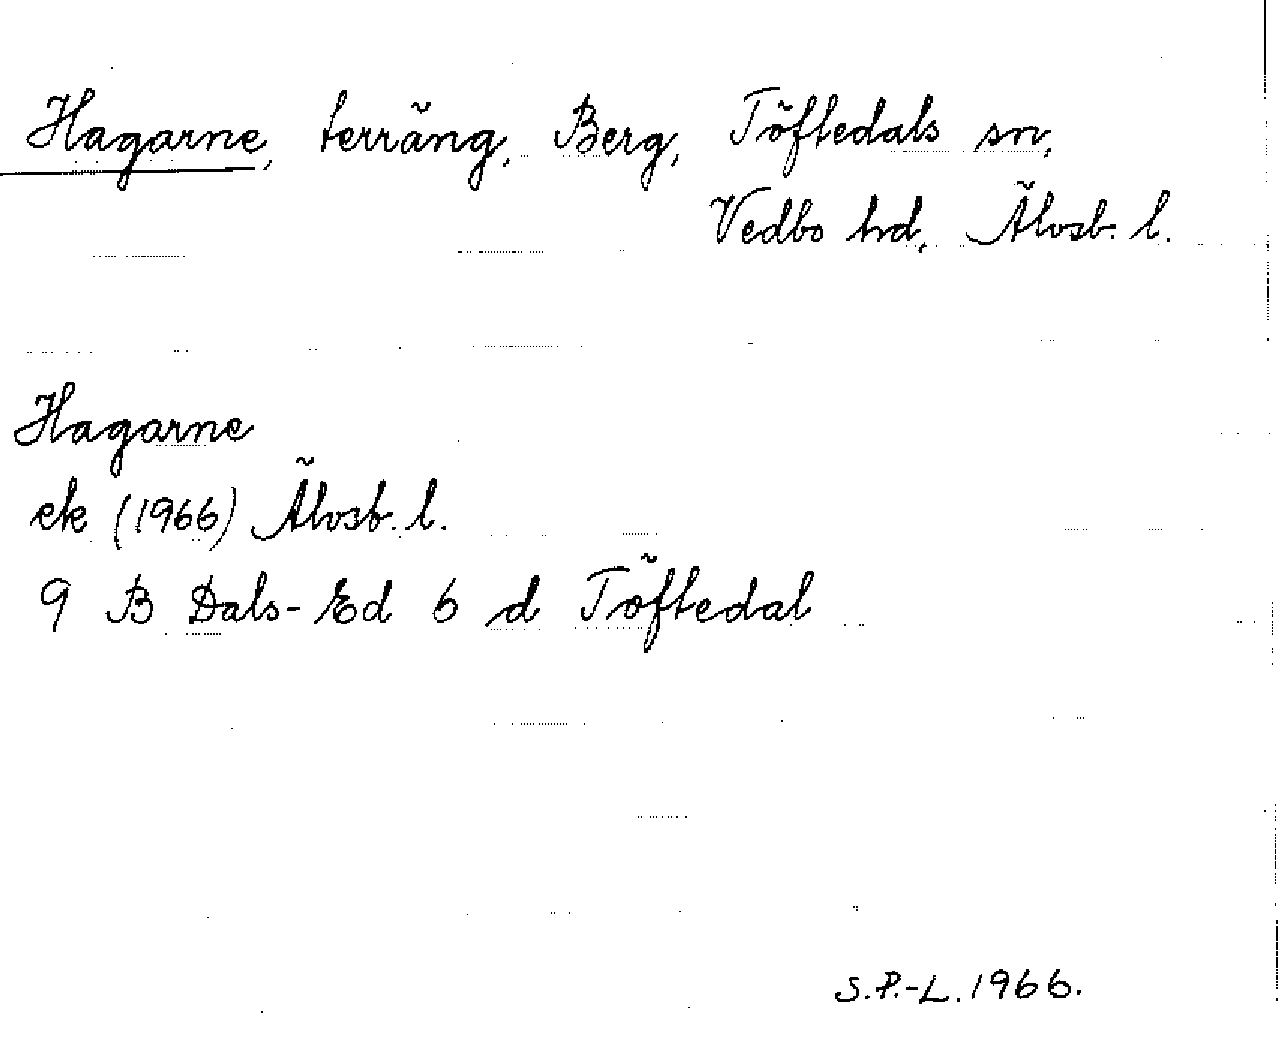 Hagarne, terräng, Berg, Töftedals sn,
Vedbo hd, Älvsb. l.
Hagarne
ek (1966) Älvsb. l.
9 B Dals-Ed 6 d Töftedal
S.P.-L. 1966.